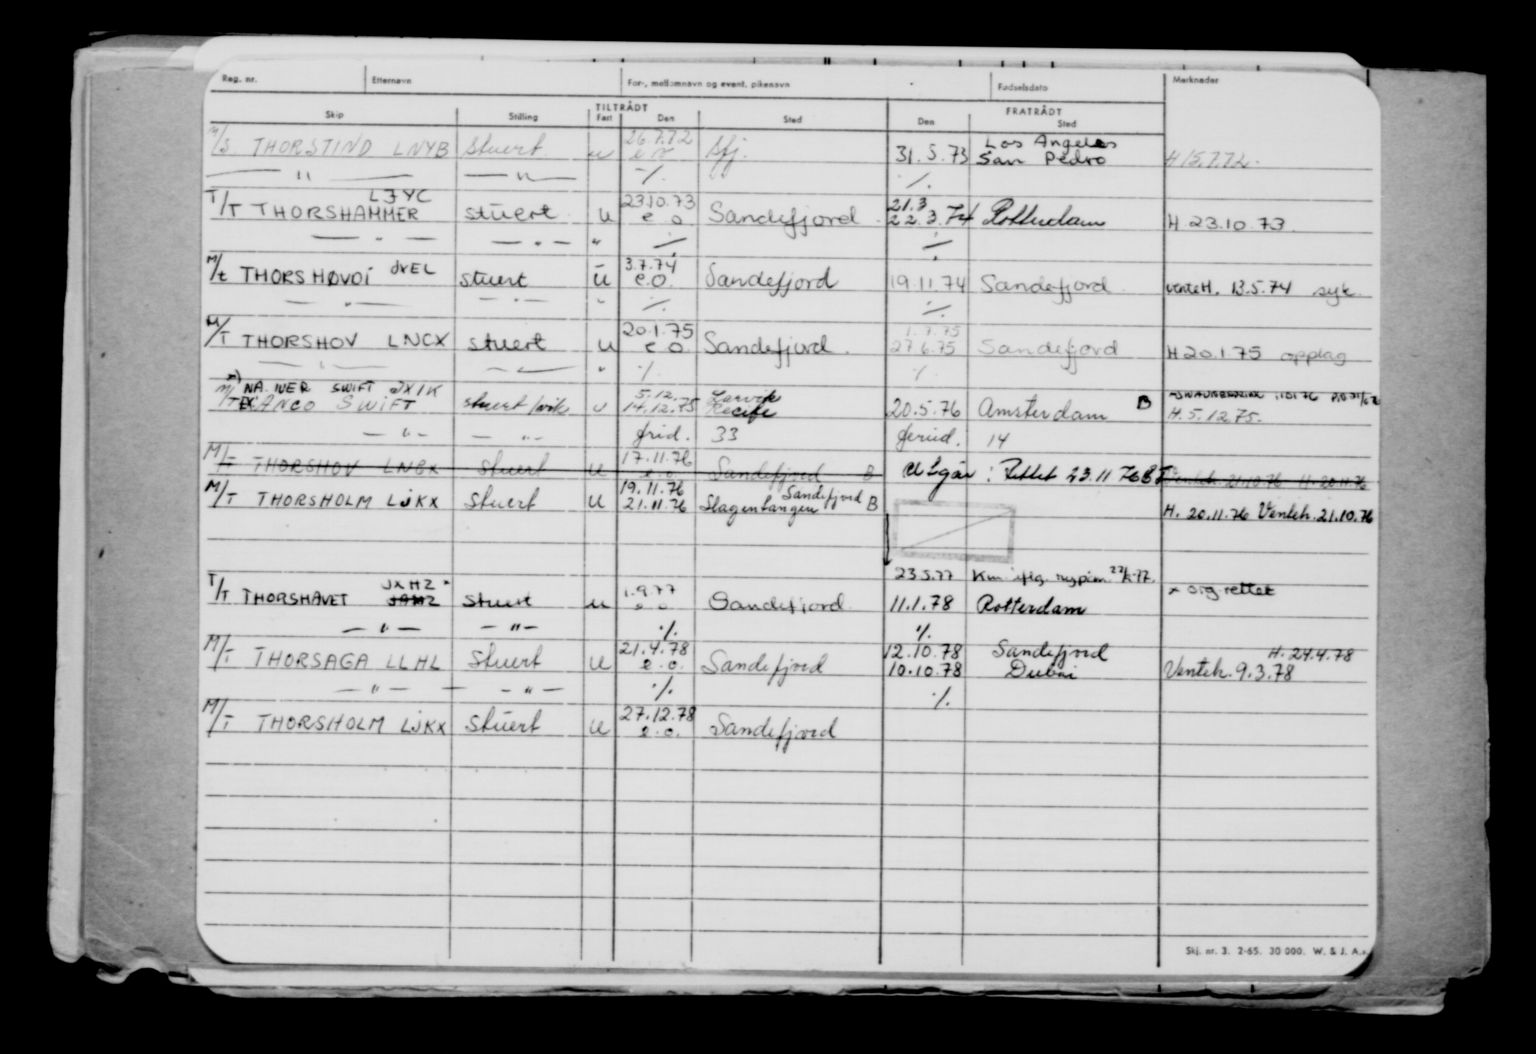 Reg. nr. Etternavn For-, mellomnavn og event. pikenavn Fødselsdato Merknader
TILTRÅDT FRATRÅDT
Skip Stilling Fart Den Sted Den Sted
M/S THORSTIND LNYB stuert u 26.7.72 e.o. Sfj. 31.5.73 Los Angeles San Pedro H 15.7.72.
— " — — " — -/- -/-
T/T THORSHAMMER LJYC stuert u 23.10.73 e.o. Sandefjord 21.3 22.3.74 Rotterdam H. 23.10.73.
— " — — " — " -/- -/-
M/t THORSHØVDI JXEL stuert u 3.7.74 e.o. Sandefjord 19.11.74 Sandefjord venteH. 13.5.74 syk.
— " — — " — " -/- -/-
M/T THORSHOV LNCX stuert u 20.1.75 e.o. Sandefjord. 1.7.75 27.6.75 Sandefjord H 20.1.75 opplag
— " — — " — " -/- -/-
x) NA. IVER SWIFT JXIK
M/T BIANCO SWIFT stuert/vik u 5.12. 14.12.75 Larvik Recife 20.5.76 Amsterdam B H. 5.12.75.
— " — — " — frid. 33 feriid. 14
M/T THORSHOV LNCX stuert u 17.11.76 e.o. Sandefjord B Utgår : Rettet 23.11.76 BJ Venteh. 21.10.76 H. 20.11.76
M/T THORSHOLM LJKX Stuert u 19.11.76 21.11.76 Sandefjord Slagentangen B H. 20.11.76 Venteh. 21.10.76
23.5.77
T/T THORSHAVET JXHZ x stuert u 1.9.77 e.o. Sandefjord. 11.1.78 Rotterdam x sig. rettet
— " — — " — -/- -/-
M/T THORSAGA LLHL Stuert u 21.4.78 e.o. Sandefjord 12.10.78 Sandefjord 10.10.78 Dubai H. 24.4.78 Venteh. 9.3.78
— " — — — " — -/- -/-
M/T THORSHOLM LJKX Stuert u 27.12.78 e.o. Sandefjord
Skj. nr. 3. 2-65. 30 000. W. & J. A.s